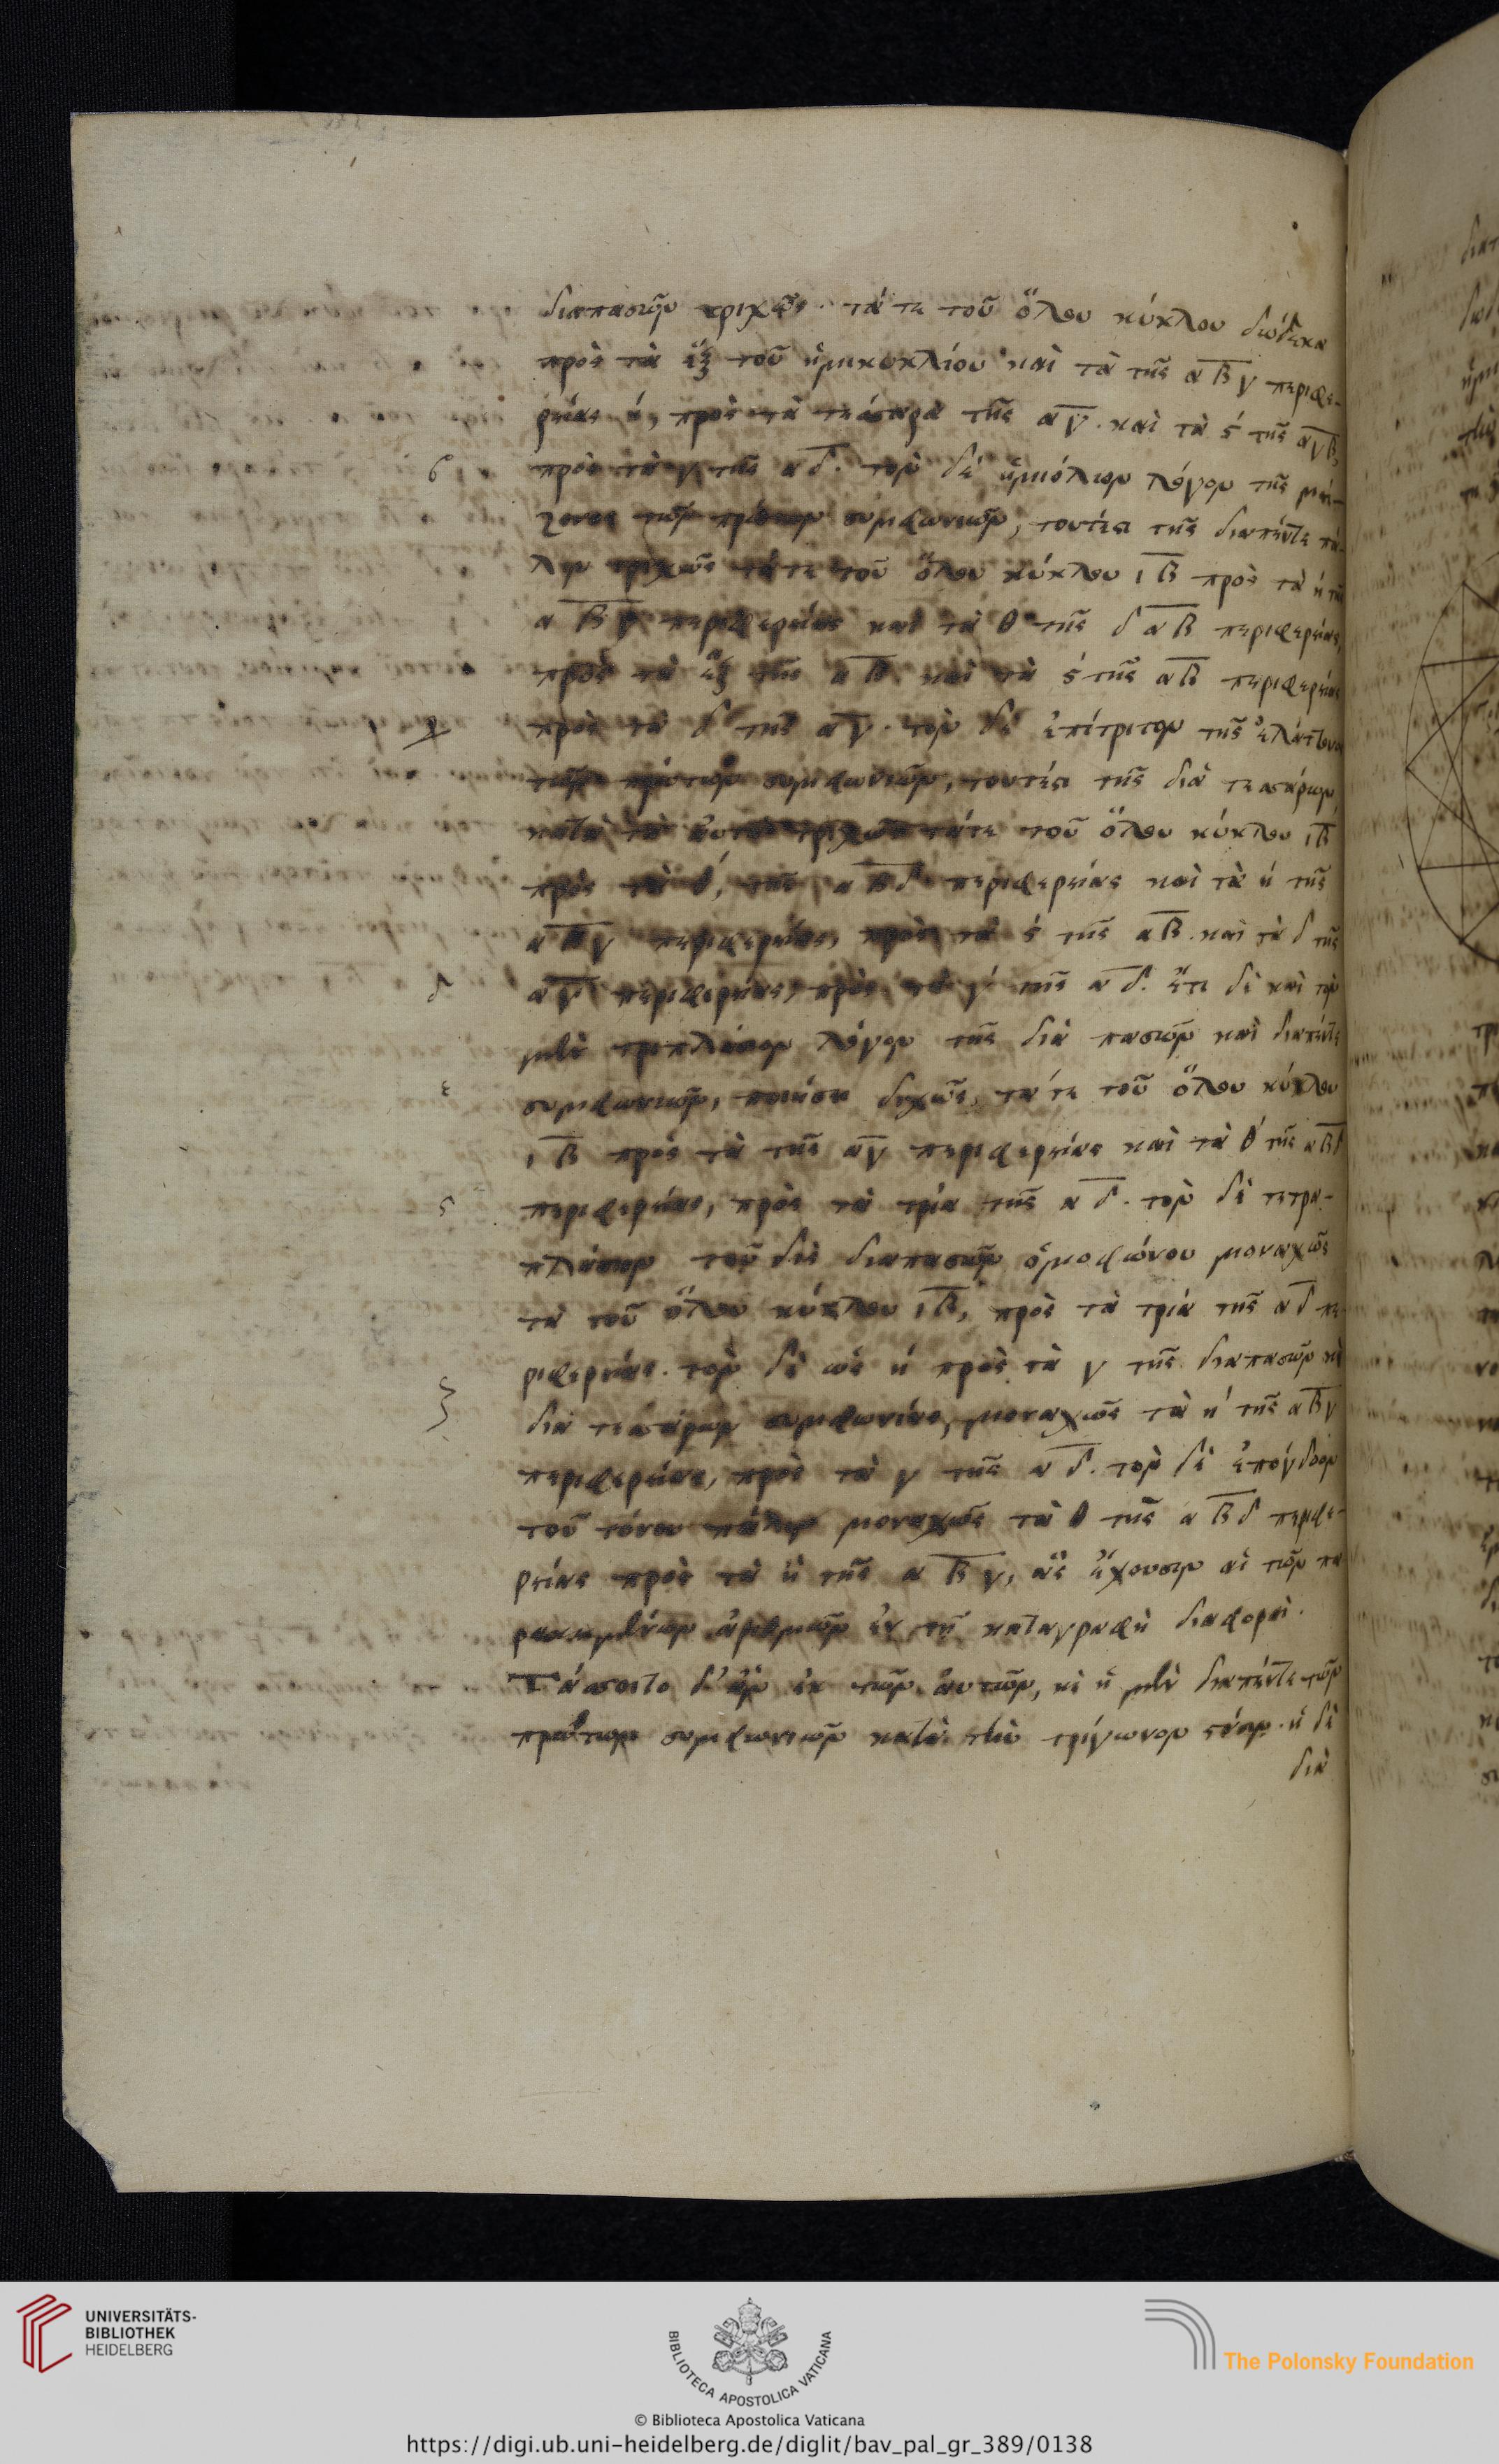 διαπασῶν τριχῶς· τά τε τοῦ ὅλου κύκλου δώδεκα
πρὸς τὰ ἓξ τοῦ ἡμικυκλίου καὶ τὰ τῆς αβγ περιφε-
ρείας η, πρὸς τὰ τέσσαρα τῆς αγ. καὶ τὰ ς τῆς αγβ,
β πρὸς τὰ γ τῆς αδ. τὸν δὲ ἡμιόλιον λόγον τῆς μεί-
ζονος τῶν πρώτων συμφωνιῶν, τουτέστι τῆς διαπέντε πά-
λιν τριχῶς τά τε τοῦ ὅλου κύκλου ιβ πρὸς τὰ η τῆς
αβγ περιφερείας καὶ τὰ θ τῆς δαβ περιφερείας,
πρὸς τὰ ἓξ τῆς αβ. καὶ τὰ ς τῆς αβ περιφερείας
πρὸς τὰ δ τῆς αγ. τὸν δὲ ἐπίτριτον τῆς ἐλάττονος
τῶν πρώτων συμφωνιῶν, τουτέστι τῆς διὰ τεσσάρων
κατὰ τὰ αὐτὰ τριχῶς τά τε τοῦ ὅλου κύκλου ιβ
πρὸς τὰ θ, τῆς αβδ περιφερείας καὶ τὰ η τῆς
αβγ περιφερείας, πρὸς τὰ ς τῆς αβ. καὶ τὰ δ τῆς
δ αγ περιφερείας, πρὸς τὰ γ τῆς αδ. ἔτι δὲ καὶ τὸν
μὲν τριπλάσιον λόγον τῆς διὰ πασῶν καὶ διαπέντε
ε συμφωνιῶν, ποιήσει διχῶς, τά τε τοῦ ὅλου κύκλου
ιβ πρὸς τὰ τῆς αγ περιφερείας καὶ τὰ θ τῆς αβδ
ς περιφερείας, πρὸς τὰ τρία τῆς αδ. τὸν δὲ τετρα-
πλάσιον τοῦ δὶς διαπασῶν ὁμοφώνου μοναχῶς
τὰ τοῦ ὅλου κύκλου ιβ, πρὸς τὰ τρία τῆς αδ πε-
ριφερείας. τὸν δὲ ὡς η πρὸς τὰ γ τῆς διαπασῶν καὶ
ζ διὰ τεσσάρων συμφωνίας, μοναχῶς τὰ η τῆς αβγ
περιφερείας, πρὸς τὰ γ τῆς αδ. τὸν δὲ ἐπόγδοον
τοῦ τόνου πάλιν μοναχῶς τὰ θ τῆς αβδ περιφε-
ρείας πρὸς τὰ η τῆς αβγ, ἃς ἔχουσιν αἱ τῶν πα
ρακειμένων ἀριθμῶν ἐν τῇ καταγραφῇ διαφοραί.
Τάσσοιτο δ' ἂν ἐκ τῶν αὐτῶν, καὶ ἡ μὲν διαπέντε τῶν
πρώτων συμφωνιῶν κατὰ τὴν τρίγωνον στάσιν. ἡ δὲ
διὰ
UNIVERSITÄTS-
BIBLIOTHEK
HEIDELBERG
BIBLIOTECA APOSTOLICA VATICANA
The Polonsky Foundation
© Biblioteca Apostolica Vaticana
https://digi.ub.uni-heidelberg.de/diglit/bav_pal_gr_389/0138